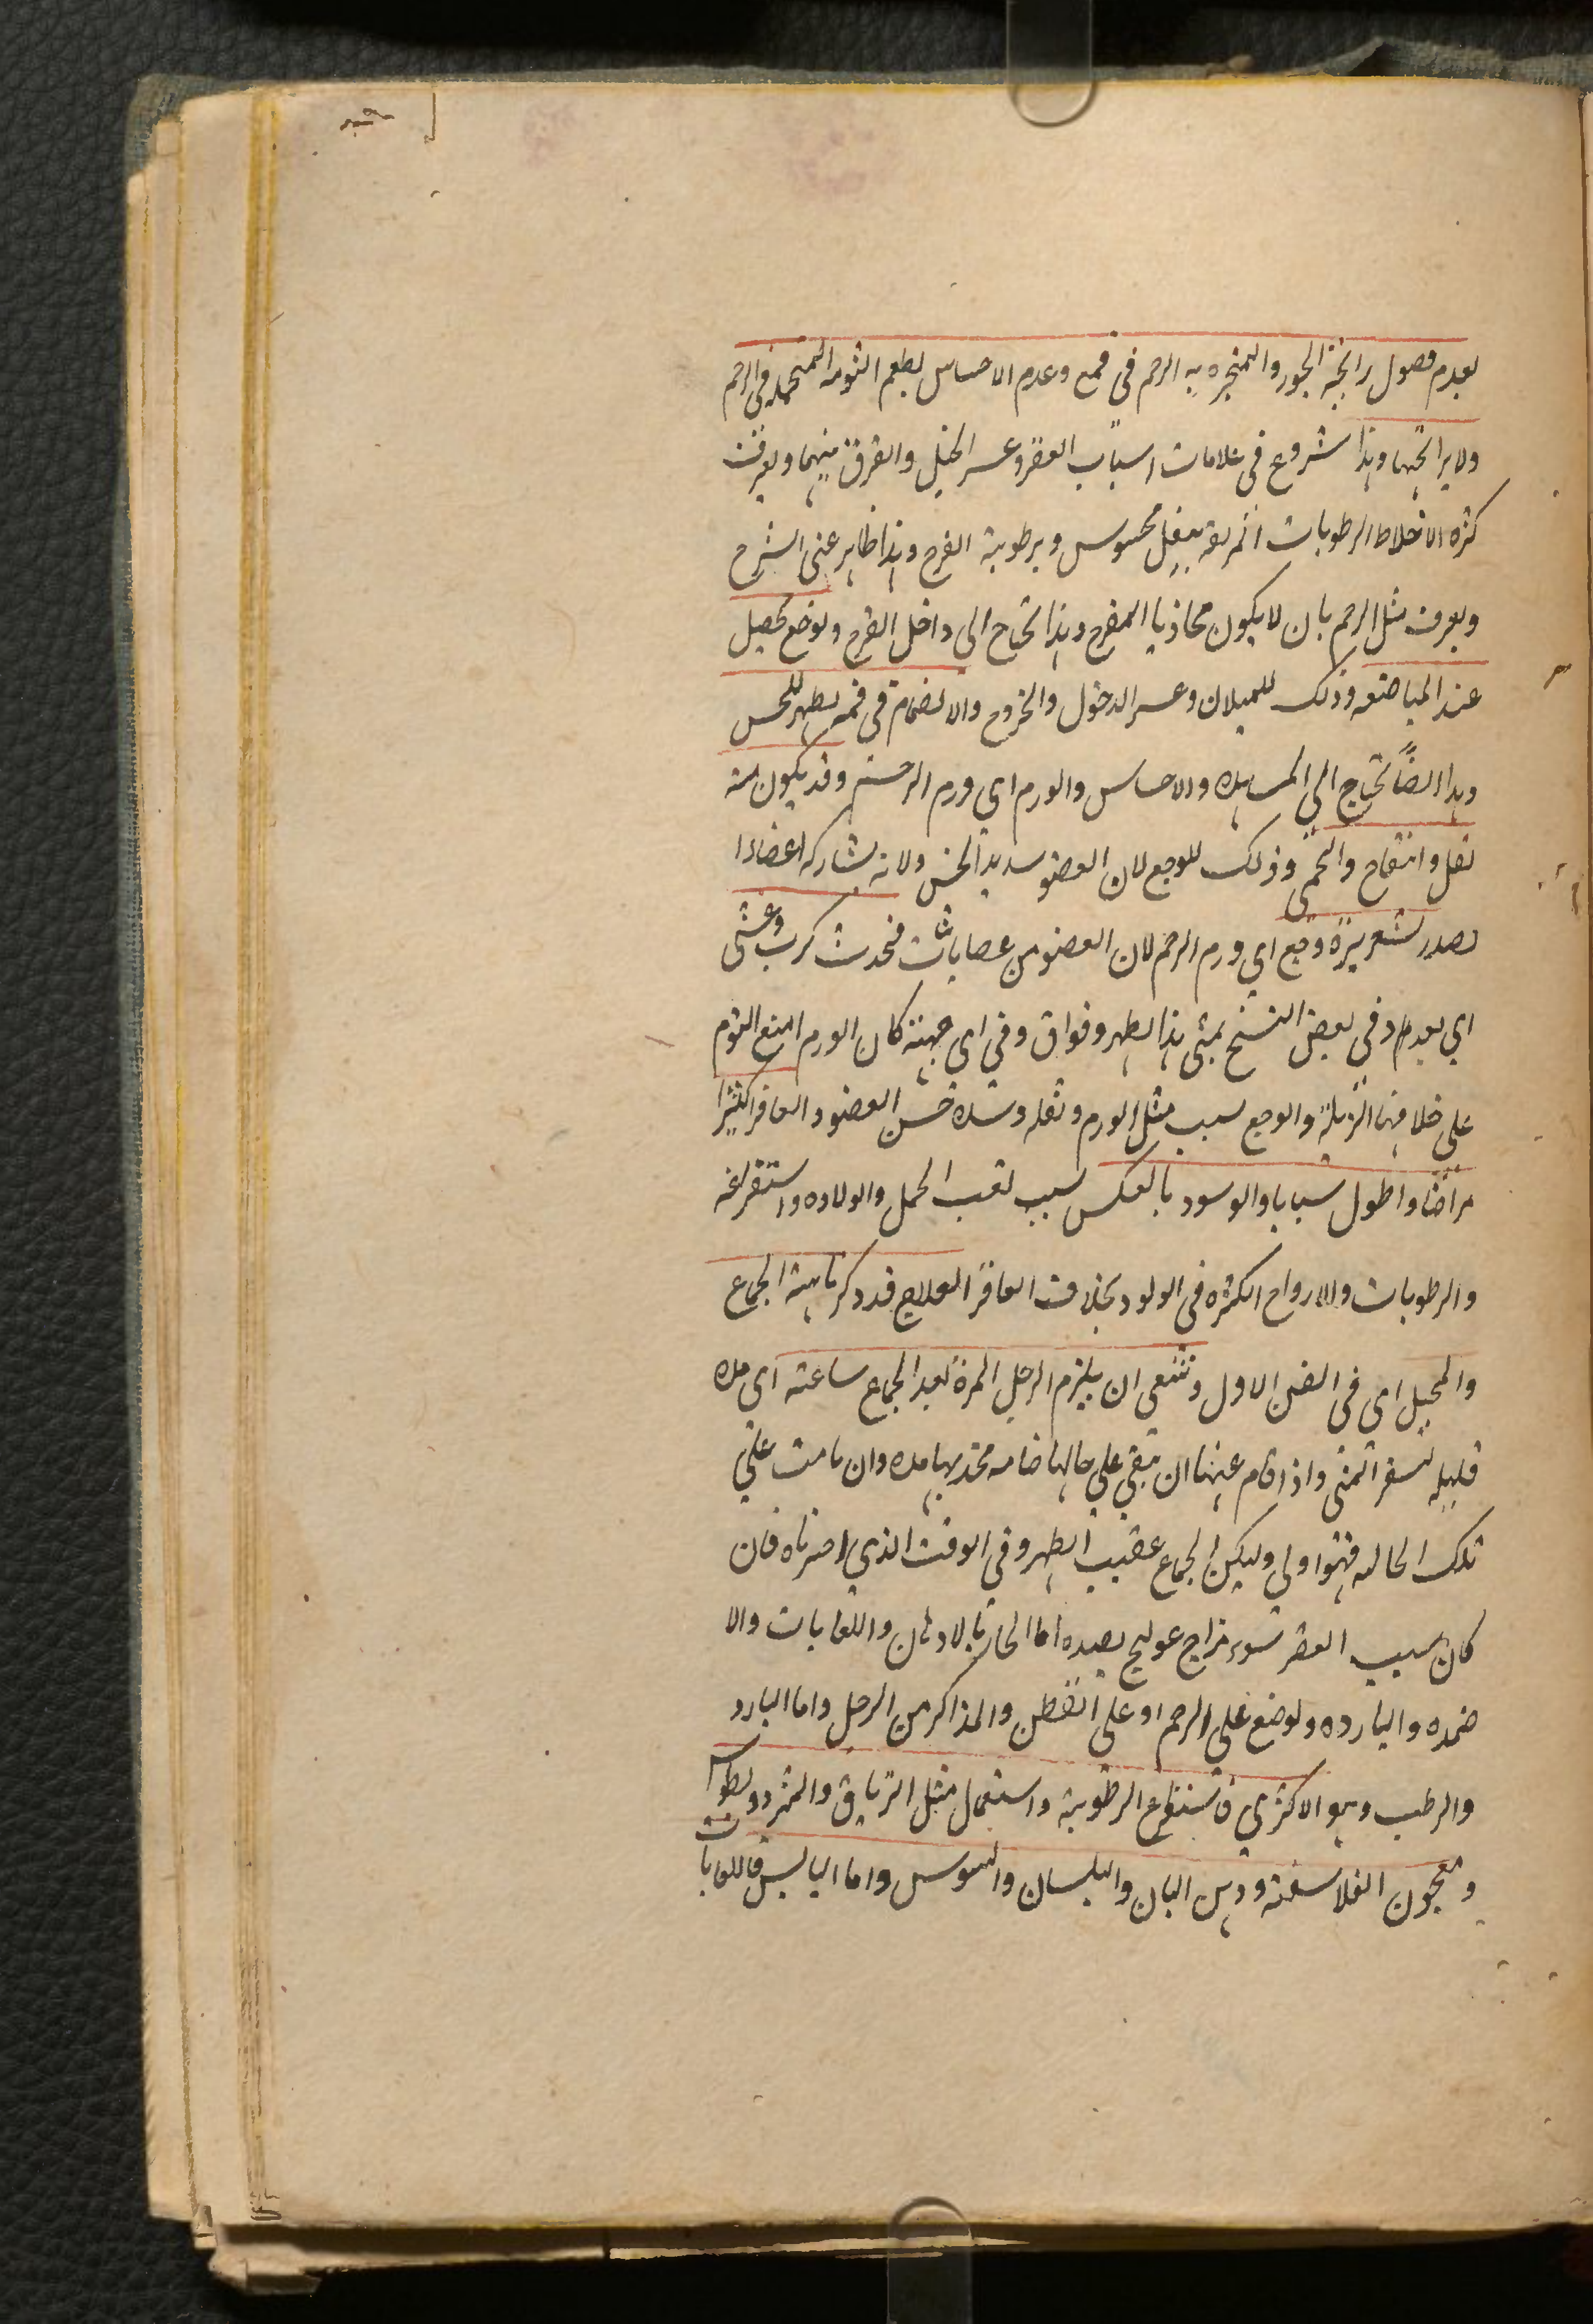 بعدم وصول رائحة البخور والمتبخره به الرحم في فمع وعدم الاحساس بطعم الثومه المتحمله في الرحم
ولا برائحتها وهذا شروع في علامات اسباب العقر وعسر الحبل والفرق بينهما ويعرف
كثره الاخلاط الرطوبات بثقل محسوس وبرطوبة الفرج وهذا ظاهر عني الشرح
ويعرف مثل الرحم بان لا يكون محاذيا المفرج وهذا يحتاج الى داخل الفرج ولوضع يحصل
عند المباضعه وذلك للميلان وعسر الدخول والخروج والانضمام في فمه يظهر للحس
وهذا ايضاً يحتاج الى المشاهده والاحساس والورم اي ورم الرحم وقد يكون منه
ثقل وانتفاخ والحمى وذلك للوجع لان العضو شديد الحس ولانه يشاركه اعضاء
قشعريرة ووجع اي ورم الرحم لان العضو من فيحدث كرب وغشى
اي بعدم وفي بعض النسخ هذا الظهر وفواق وفي اى جهته كان الورم امتنع النوم
على خلافها والوجع لسبب مثل الورم وثقله وشده حس العضو والعاقر اكثر
مراضا واطول شبابا والولود بالعكس لسبب تعب الحمل والولاده واستفراغه
والرطوبات والارواح الكثره في الولود بخلاف العاقر العلاج قد ذكرنا هيئة الجماع
والمحبل اى في الفن الاول وينبغى ان يلزم الرجل المرة بعد الجماع ساعة اى مده
قليله ليستقر المنى واذا قام عنها ان تبقى على حالها ضامه فخذيها مده وان نامت على
تلك الحاله فهو اولى وليكن الجماع عقيب الطهر وفي الوقت الذي اخترناه فان
كان سبب العقر سوء مزاج عولج بضده اما الحار بالادهان واللعابات والا
ضمده والبارده ولوضع على الرحم او على القطن والمذاكر من الرجل واما البارد
والرطب وهو الاكثري فاستفراغ الرطوبة واستعمال مثل الترياق والمثرودیطوس
ومعجون الفلاسفة ودهن البان والبلسان والسوسن واما اليابس فاللعابات